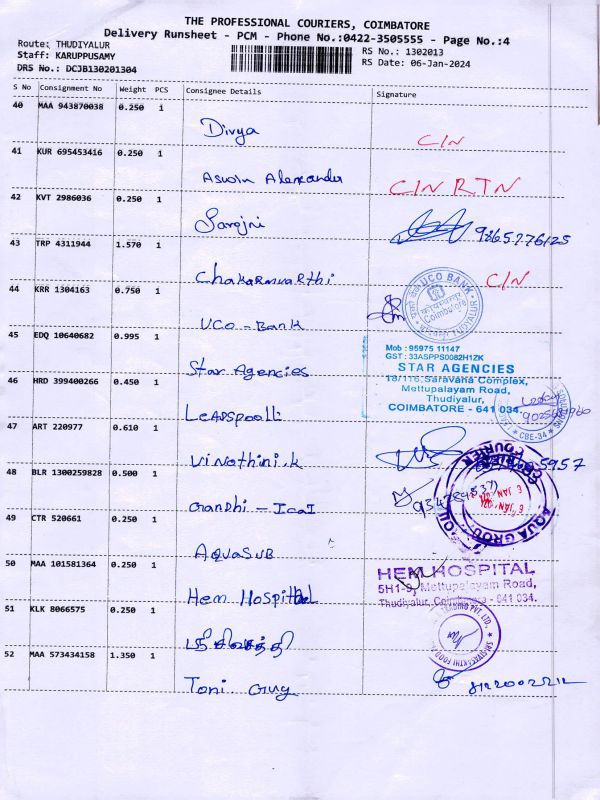 THE PROFESSIONAL COURIERS, COIMBATORE
Delivery Runsheet - PCM - Phone No.:0422-3505555 - Page No.:4
Route: THUDIYALUR
Staff: KARUPPUSAMY
DRS No.: DCJB130201304
RS No.: 1302013
RS Date: 06-Jan-2024
S No Consignment No Weight PCS Consignee Details Signature
40 MAA 943870038 0.250 1
Divya C/N
41 KUR 695453416 0.250 1
Aswin Alexander C/N RTN
42 KVT 2986036 0.250 1
Sarojni
43 TRP 4311944 1.570 1
Chakarmvarthi C/N
44 KRR 1304163 0.750 1
UCO - Bank
UCO BANK
Coimbatore
45 EDQ 10640682 0.995 1
Star Agencies
Mob : 95975 11147
GST : 33ASPPS0082H1ZK
STAR AGENCIES
18/116, Saravana Complex,
Mettupalayam Road,
Thudiyalur,
COIMBATORE - 641 034.
46 HRD 399400266 0.450 1
CBE-34
47 ART 220977 0.610 1
Vinothini.k
48 BLR 1300259828 0.500 1
Gandhi - Icai
49 CTR 520661 0.250 1
AquaSub
AQUA GROUP
COURIER
6 JAN
50 MAA 101581364 0.250 1
Hem Hospital
HEM HOSPITAL
5H1-9, Mettupalayam Road,
Thudiyalur, Coimbatore - 041 034.
51 KLK 8066575 0.250 1
52 MAA 573434158 1.350 1
Toni Guy